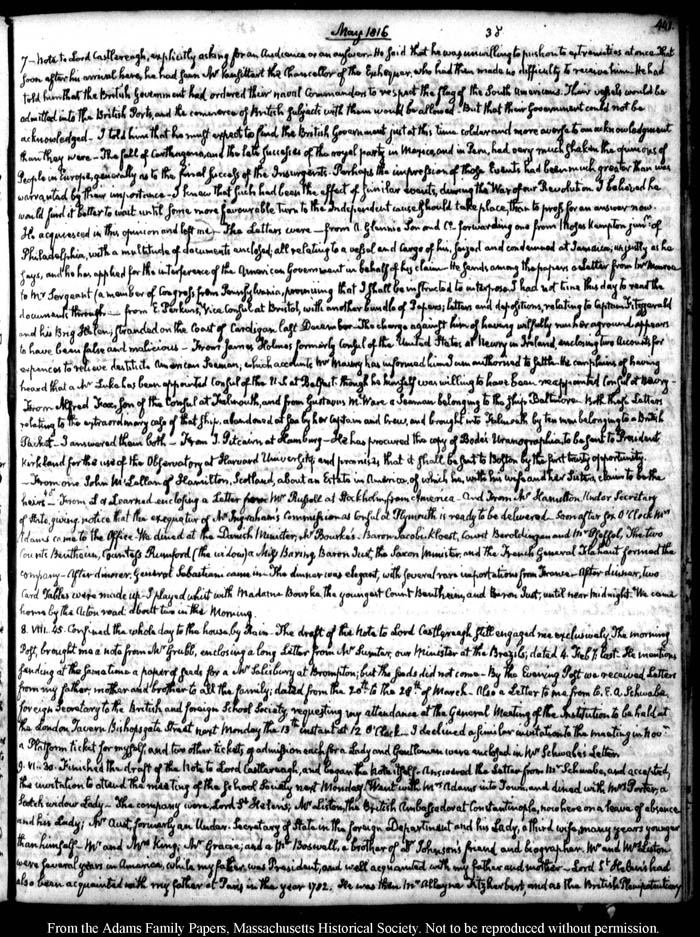 May 1816 38 441
7 – Note to Lord Castlereagh, explicitly asking for an Audience or an answer. He said that he was unwilling to push on to extremities at once. That
soon after his arrival here, he had seen Mr Vansittart the Chancellor of the Exchequer, who had then made no difficulty to receive him. He had
told him that the British Government had ordered their naval Commanders to respect the flag of the South Americans. Their vessels would be
admitted into the British Ports, and the commerce of British Subjects with them would be allowed. But that their Government could not be
acknowledged – I told him that he must expect to find the British Government just at this time colder and more averse to an acknowledgment
than they were – The fall of Carthagena, and the late successes of the royal party in Mexico, and in Peru, had very much shaken the opinions of
People in Europe, generally as to the final success of the Insurgents. Perhaps the impression of those Events had been much greater than was
warranted by their importance – I knew that such had been the effect of similar events, during the War of our Revolution. I believed he
would find it better to wait until some more favourable turn to the Independent cause should take place, than to press for an answer now.
He acquiesced in this opinion and left me – The Letters were – from A. Glennie Son and Co. forwarding one from Moses Kempton junr. of
Philadelphia, with a multitude of documents enclosed; all relating to a vessel and Cargo of his, seized and condemned at Jamaica, unjustly as he
says, and he has applied for the interference of the American Government in behalf of his claim – He sends among the papers a letter from Mr Monroe
to Mr Sergeant (a member of Congress from Pennsylvania, promising that I shall be instructed to interpose. I had not time this day to read the
documents through – from E. Perkins, Vice Consul at Bristol, with another bundle of Papers; letters and depositions, relating to Captain Fitzgerald
and his Brig Helen, stranded on the Coast of Cardigan last December. The charge against him of having wilfully run her aground, appears
to have been false and malicious – From James Holmes formerly Consul of the United States at Newry in Ireland, enclosing two Accounts for
expences to relieve destitute American Seamen, which accounts Mr Maury has informed him I am authorised to settle. He complains of having
heard that a Mr Luke has been appointed Consul of the U.S. at Belfast though he himself was willing to have been reappointed Consul at Newry –
From Alfred Fox, Son of the Consul at Falmouth, and from Gustavus M. Ware a Seaman belonging to the Ship Baltimore. Both these Letters
relating to the extraordinary case of that Ship, abandoned at Sea by her Captain and Crew, and brought into Falmouth by ten men belonging to a British
Packet – I answered them both – From J. Pitcairn at Hamburg – He has procured the copy of Bode's Uranographia, to be sent to President
Kirkland for the use of the Observatory at Harvard University, and promises that it shall be sent to Boston by the first trusty opportunity.
– From one John McLellan of Hamilton, Scotland, about an Estate in America, of which he, with his wife and her Sisters claim to be the
heirs – From J. A. Learned enclosing a Letter from Mr Russell at Stockholm from America – And from Mr Hamilton, Under Secretary
of State, giving notice that the exequatur of Mr Ingraham's Commission as Consul at Plymouth is ready to be delivered – Soon after six O'Clock Mrs
Adams came to the Office. We dined at the Danish Minister, Mr Bourke's – Baron Jacobi Kloest, Count Beroldingen and Mr Pfeffel, The two
Counts Bentheim, Countess Rumford (the widow) a Miss Baring, Baron Just, the Saxon Minister, and the French General Flahaut formed the
company – After dinner General Sebastiani came in – The dinner was elegant, with several rare importations from France – After dinner, two
Card Tables were made up – I played whist with Madame Bourke, the youngest Count Bentheim, and Baron Just, until near midnight. We came
home by the Acton road about two in the Morning.
8. VIII. 45. Confined the whole day to the house by Rain – The draft of the Note to Lord Castlereagh still engaged me exclusively. The morning
Post, brought me a note from Mr Grubb, enclosing a long Letter from Mr Sumter, our Minister at the Brazils, dated 4. Feby last. He mentions
sending at the same time a paper of seeds for a Mr Salisbury at Brompton; but the seeds did not come – By the Evening Post we received Letters
from my father, mother and brother to all the family; dated from the 20th to the 26th of March – Also a Letter to me from C. F. A. Schwabe,
foreign Secretary to the British and foreign School Society, requesting my attendance at the General Meeting of the Institution to be held at
the London Tavern Bishopsgate Street next Monday the 13th instant at 12 O'Clock – I declined a similar invitation to the meeting in Novr.
a Platform ticket for myself, and two other tickets of admission each for a Lady and Gentleman were enclosed in Mr Schwabe's Letter.
9. VII. 30. Finished the draft of the Note to Lord Castlereagh, and began the Note itself. Answered the Letter from Mr Schwabe, and accepted,
the invitation to attend the meeting of the School Society next Monday. Went with Mrs Adams into Town, and dined with Mrs Porter, a
Scotch widow Lady – The company were, Lord St Helens; Mr Liston, the British Ambassador at Constantinople, now here on a leave of absence
and his Lady; Mr Aust, formerly an Under Secretary of State in the foreign Department and his Lady, a third wife, many years younger
than himself – Mr and Mrs King; Mr Gravie; and a Mr Boswell, a brother of Dr Johnson's friend and biographer. Mr and Mrs Liston
were several years in America, while my father was President, and well acquainted with my father and mother – Lord St Helens had
also been acquainted with my father at Paris in the year 1782. He was then Mr Alleyne Fitzherbert, and as the British Plenipotentiary
From the Adams Family Papers, Massachusetts Historical Society. Not to be reproduced without permission.